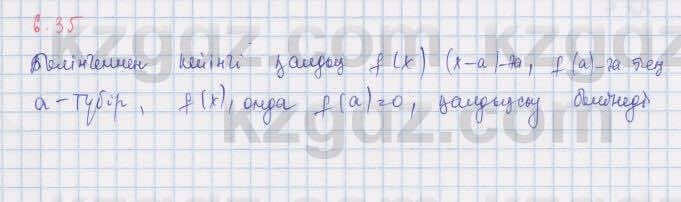 6.35
Бөлінгеннен кейінгі қалдық f(x) (x-a)-ға, f(a)-ға тең
a-түбір, f(x), онда f(a)=0, қалдықсыз бөлінеді
kzgdz.com
kzgdz.com